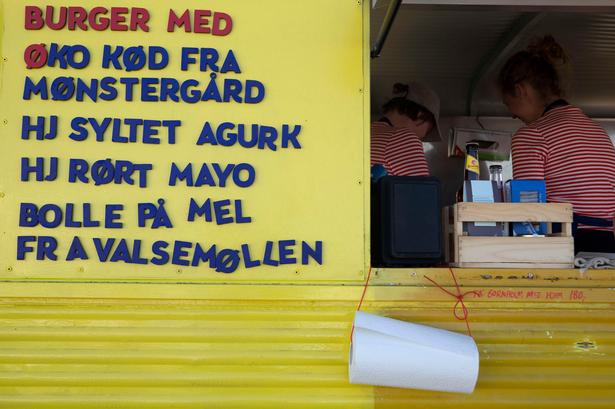 BURGER MED
ØKO KØD FRA
MØNSTERGÅRD
HJ SYLTET AGURK
HJ RØRT MAYO
BOLLE PÅ MEL
FRA VALSEMØLLEN